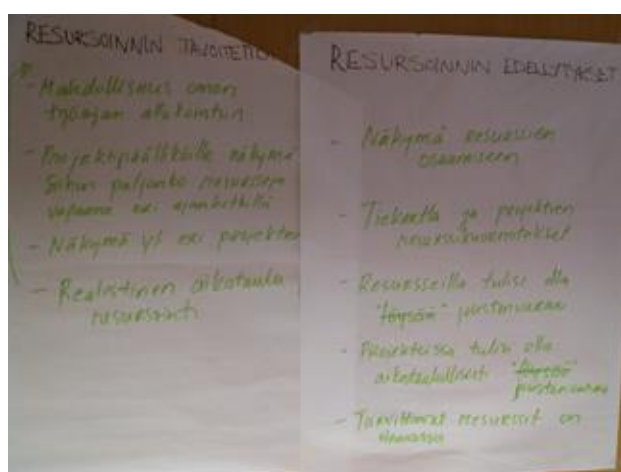 RESURSOINNIN TAVOITETILA
- Mahdollisuus oman
työajan allokointiin
- Projektipäälliköille näkymä
siihen paljonko resurssein
vapaana eri ajanhetkillä
- Näkymä yli eri projektien
- Realistinen aikataulu
resursointi
RESURSOINNIN EDELLYTYKSET
- Näkymä resurssien
osaamiseen
- Tiekartta ja projektien
- Resursseilla tulisi olla
"löysää" joustonvaraa
- Projekteissa tulisi olla
aikataulullisesti "löysää"
joustonvaraa
- Tarvittavat resurssit on
olemassa